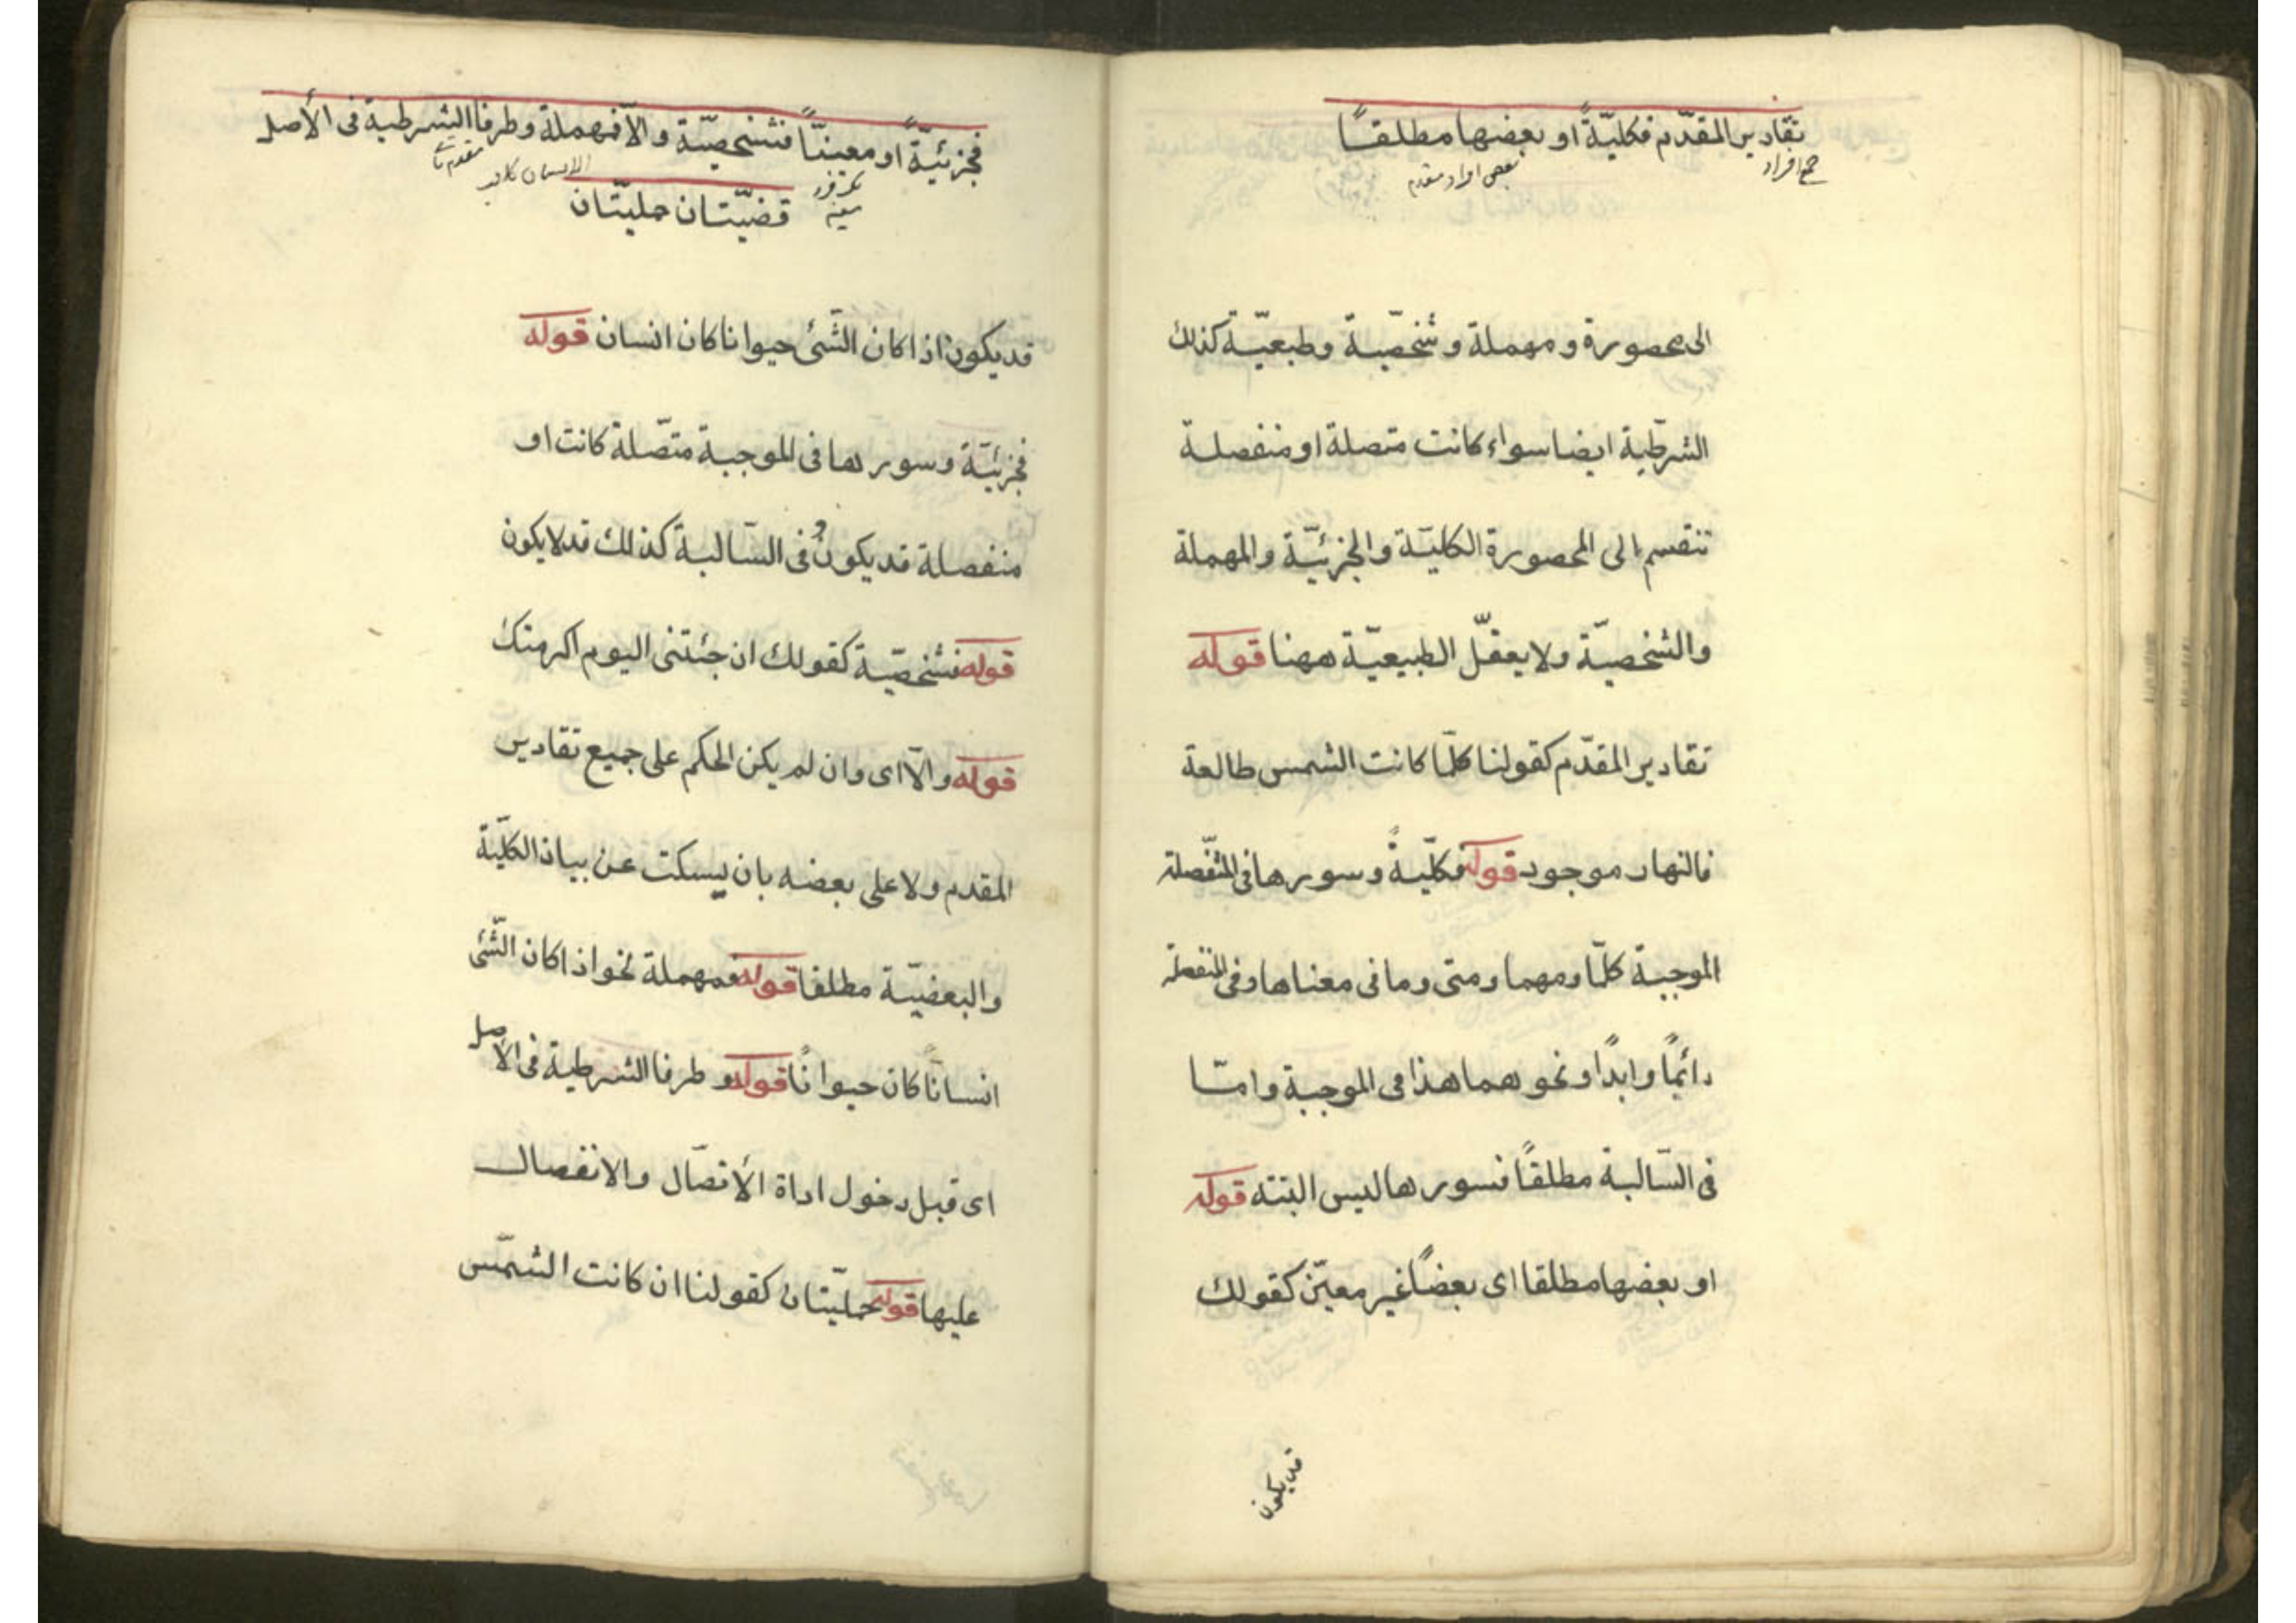 تقادير المقدّم فكليّةً او بعضها مطلقـــًا
جمع افراد
بعض افراد مقدم
الى محصورة و مهملة و شخصّية وطبعيّـة كذلك
الشرطية ايضا سواء كانت متصلة او منفصلة
تنقسم الى المحصورة الكليّة والجزئيّة والمهملة
والشخصيّة ولا يعقّل الطبيعيّة ههنا قوله
تقادير المقدّم كقولنا كلّما كانت الشمس طالعة
فالنهار موجود قوله فكليّةً وسورها فى المتّصلة
الموجبة كلّما ومهما ومتى وما فى معناها وفى المنفصلة
دائمًا وابدًا ونحوهما هذا فى الموجبة وامّا
فى السّالبة مطلقًا فسورها ليس البتته قوله
او بعضها مطلقا اى بعضًا غير معيّن كقولك
قد يكون
فجزئيّةً او معينًّا فشخصيّة والّا فمهملة وطرفا الشرطية فى الأصل
مقدم تالى
قضيّتان حمليّتان
قد يكون اذا كان الشّئ حيوانا كان انسان قوله
فجزئيّة وسورها فى الموجبة متصّلة كانت او
منفصلة قد يكون و فى السّالبة كذلك قد لا يكون
قوله فشخصيّة كقولك ان جئتنى اليوم اكرمتك
قوله والّا اى وان لم يكن الحكم على جميع تقادير
المقدم ولا على بعضه بان يسكت عن بيان الكليّة
والبعضيّة مطلقا قوله فمهملة نحو اذا كان الشّئ
انسانًا كان حيوانًا قوله و طرفا الشرطية فى الاصل
اى قبل دخول اداة الأتصّال والانفصال
عليها قوله حمليّتان كقولنا ان كانت الشمّس